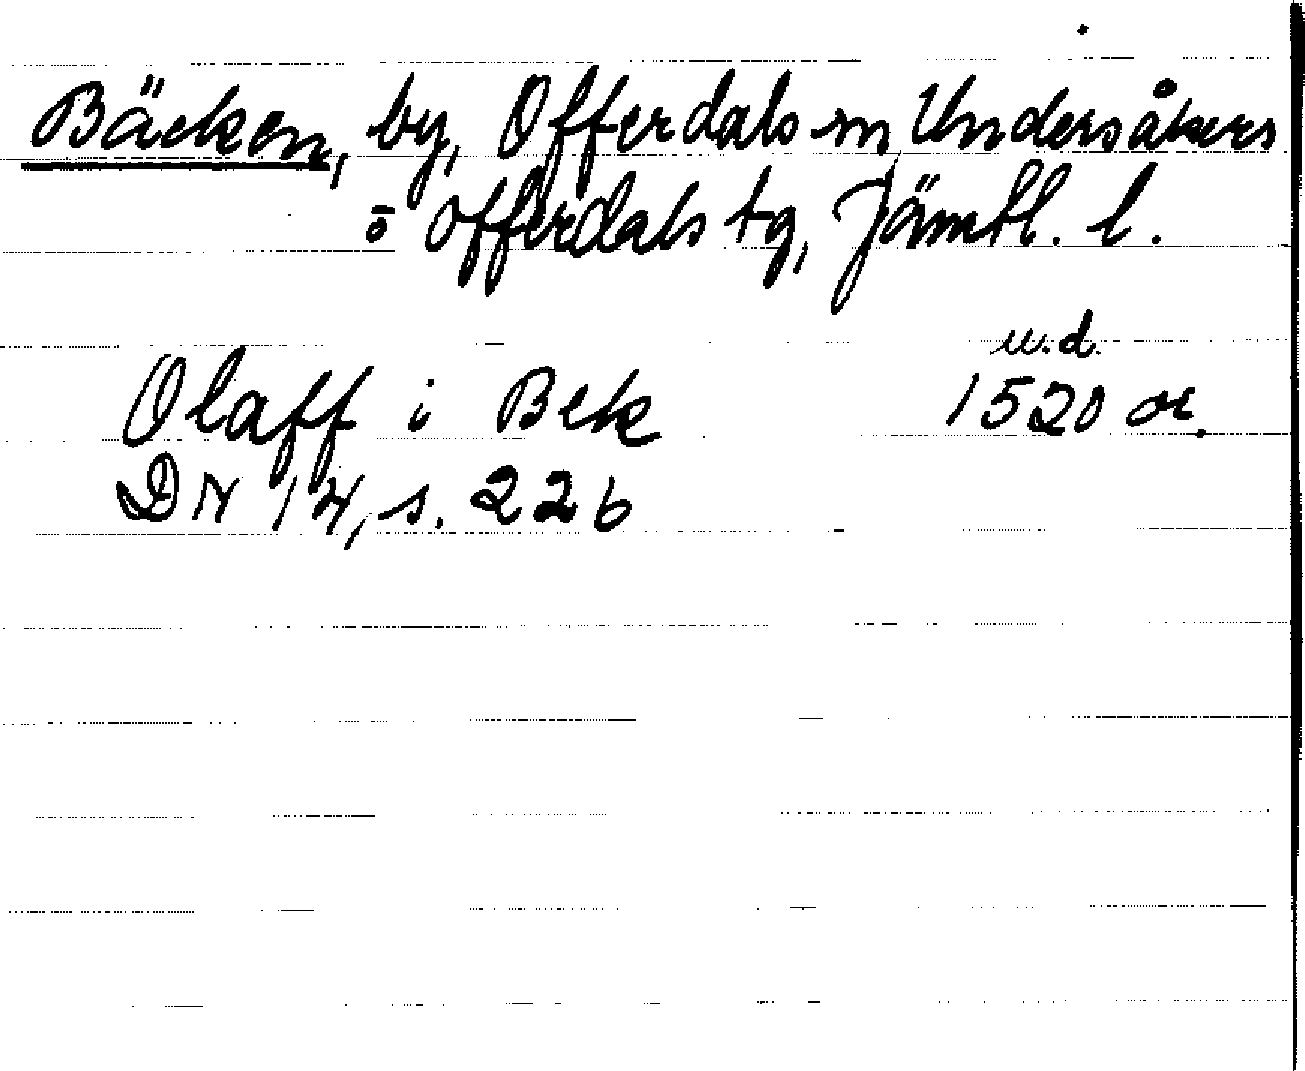 Bäcken, by, Offerdals sn, Undersåkers
o Offerdals tg, Jämtl. l.
u.d.
Olaff i Bek 1520 or.
DN 14, s. 226